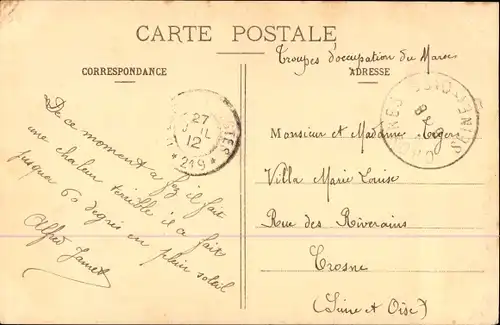 CARTE POSTALE
Troupes d'occupation du Maroc
CORRESPONDANCE
ADRESSE
De ce moment a Fez il fait
une chaleur terrible il a fait
jusqua 60 degrés en plein soleil
Alfred Jamet
27
12
* 219 *
Monsieur et Madame
Villa Marie Louise
Rue des Riverains
Crosne
(Seine et Oise)